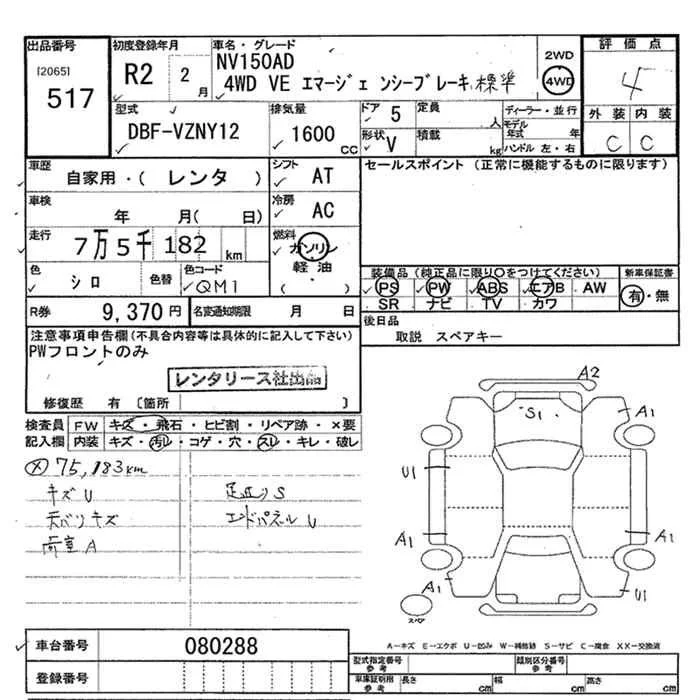 出品番号
[2065]
517
初度登録年月
R2 2月
車名・グレード
NV150AD
4WD VE エマージェンシーブレーキ 標準
2WD
4WD
評価点
4
外装 内装
C C
型式
DBF-VZNY12
排気量
1600 CC
ドア 5
形状 V
定員 人
積載 kg
ディーラー・並行
モデル年式 年
ハンドル 左・右
車歴
自家用・( レンタ )
シフト AT
車検
年 月( 日)
冷房 AC
走行
7万5千182 km
燃料
ガソリン
軽油
( ・ )
色 シロ
色替
色コード
QM1
R券 9,370円
名変通知期限 月 日
セールスポイント (正常に機能するものに限ります)
装備品 (純正品に限り○をつけてください)
新車保証書
PS PW ABS エアB AW
SR ナビ TV カワ
有・無
後日品
取説 スペアキー
注意事項申告欄(不具合内容等は具体的に記入して下さい)
PWフロントのみ
レンタリース社出品
修復歴 有 〔箇所 〕
検査員記入欄
FW キズ・飛石・ヒビ割・リペア跡・×要
内装 キズ・汚レ・コゲ・穴・スレ・キレ・破レ
75,183km
キズU
足廻りS
天バリキズ
エンドパネルU
荷室A
A2
S1
A1
U1
A1
A1
A1
U1
スペア
A-キズ E-エクボ U-凹凸ルμ W-補修跡 S-サビ C-腐食 XX-交換済
車台番号 080288
登録番号
型式指定番号 参考
類別区分番号 参考
車庫証明用 参考
長さ cm
幅 cm
高さ cm